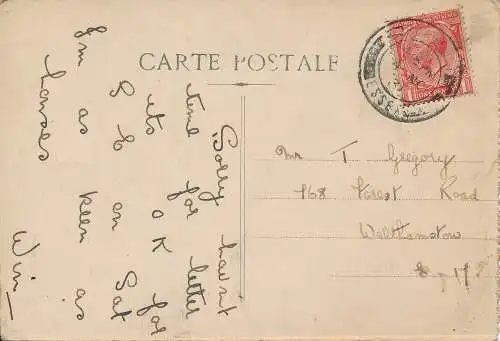 CARTE POSTALE
Sorry havnt
time for letter
its O K for
S E on Sat
I'm as keen as
Win
Mr T Gregory
168 Forest Road
Walthamstow
E. 17
ESSEX
ONE PENNY